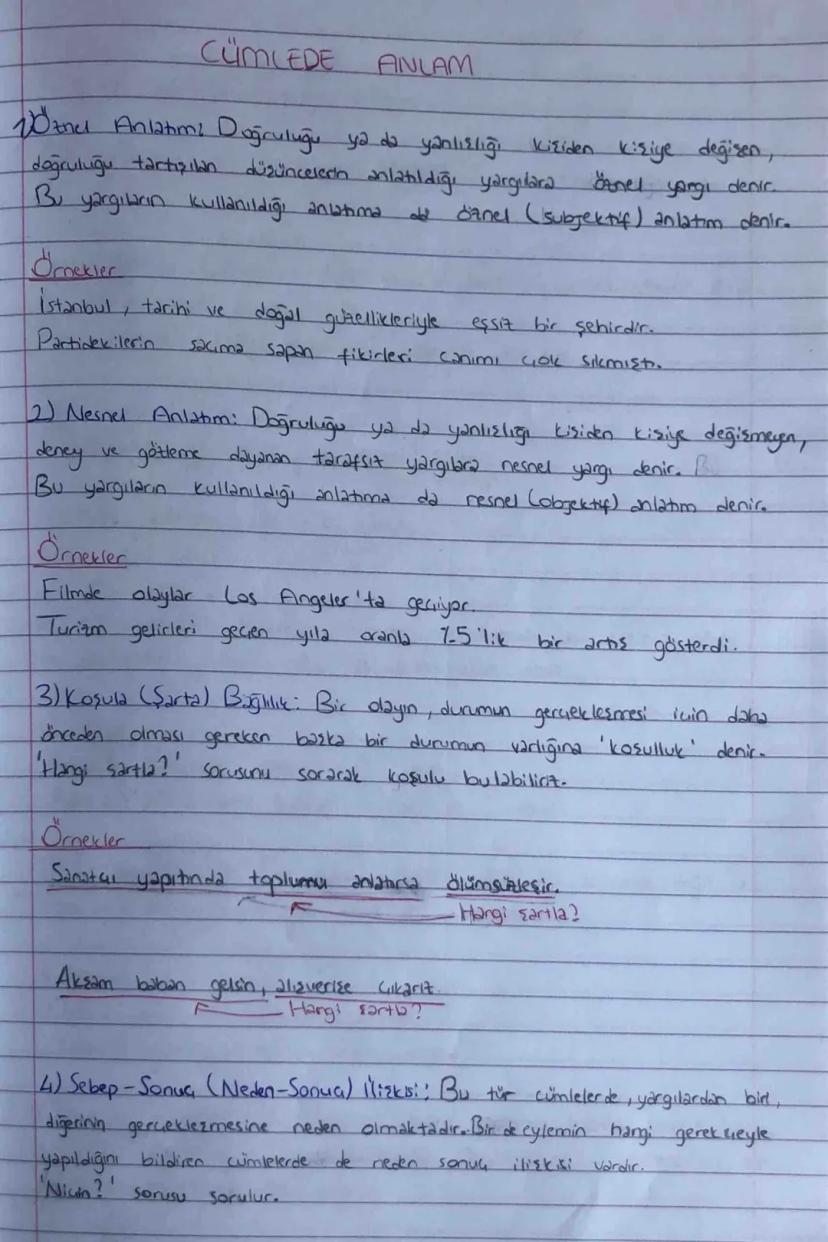 CÜMLEDE ANLAM
1) Öznel Anlatım: Doğruluğu ya da yanlışlığı kişiden kişiye değişen,
doğruluğu tartışılan düşüncelerin anlatıldığı yargılara öznel yargı denir.
Bu yargıların kullanıldığı anlatıma da öznel (subjektif) anlatım denir.
Örnekler
İstanbul, tarihi ve doğal güzellikleriyle eşsiz bir şehirdir.
Partidekilerin saçma sapan fikirleri canımı çok sıkmıştı.
2) Nesnel Anlatım: Doğruluğu ya da yanlışlığı kişiden kişiye değişmeyen,
deney ve gözleme dayanan tarafsız yargılara nesnel yargı denir.
Bu yargıların kullanıldığı anlatıma da nesnel (objektif) anlatım denir.
Örnekler
Filmde olaylar Los Angeles'ta geçiyor.
Turizm gelirleri geçen yıla oranla %5'lik bir artış gösterdi.
3) Koşula (Şarta) Bağlılık: Bir olayın, durumun gerçekleşmesi için daha
önceden olması gereken başka bir durumun varlığına 'koşulluk' denir.
'Hangi şartla?' sorusunu sorarak koşulu bulabiliriz.
Örnekler
Sanatçı yapıtında toplumu anlatırsa ölümsüzleşir.
Hangi şartla?
Akşam baban gelsin, alışverişe çıkarız.
Hangi şartla?
4) Sebep-Sonuç (Neden-Sonuç) İlişkisi: Bu tür cümlelerde, yargılardan biri,
diğerinin gerçekleşmesine neden olmaktadır. Bir de eylemin hangi gerekçeyle
yapıldığını bildiren cümlelerde de neden sonuç ilişkisi vardır.
'Niçin?' sorusu sorulur.